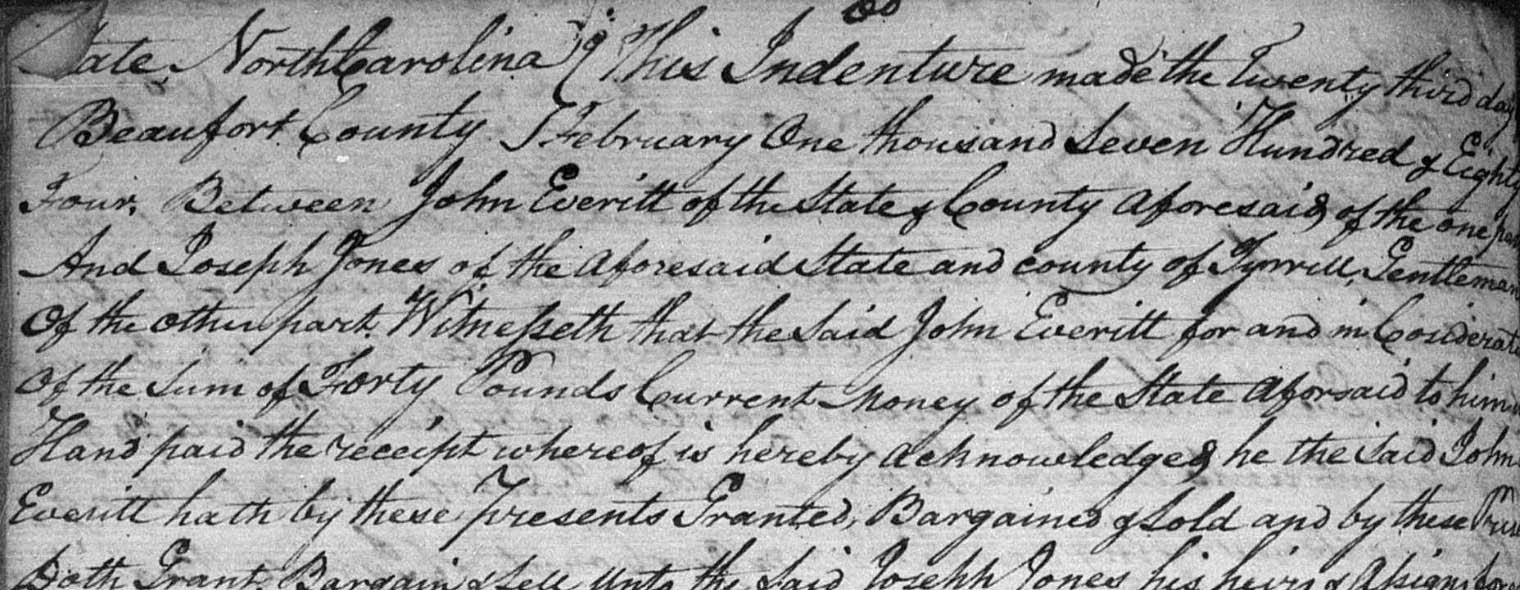 State NorthCarolina } This Indenture made the twenty third day
Beaufort County } February One thousand Seven Hundred & Eighty
Four, Between John Everitt of the State & County aforesaid of the one part
And Joseph Jones of the aforesaid State and county of Tyrrell, Gentleman
Of the other part, Witnesseth that the Said John Everitt for and in Considerat
Of the Sum of Forty Pounds Current Money of the State Aforsaid to him
Hand paid the receipt whereof is hereby acknowledged he the Said John
Everitt hath by these Presents Granted, Bargained & Sold and by these
Doth Grant, Bargain & Sell Unto the Said Joseph Jones his heirs & Assigns for